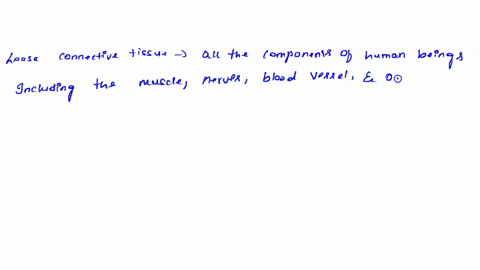 Loose connective tissue → all the components of human beings
Including the muscle, nerves, blood vessel, &